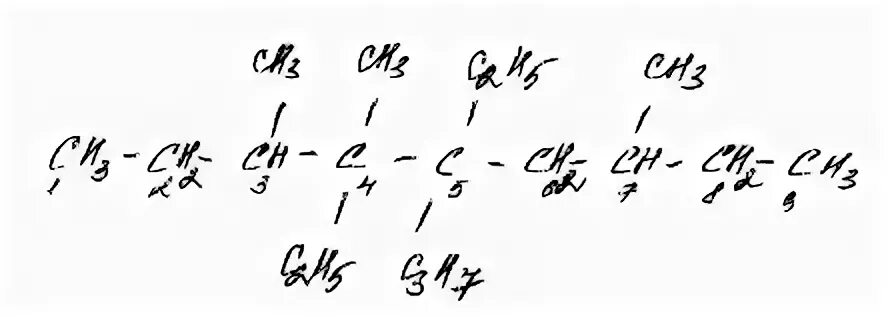 CH3 CH3 C2H5 CH3
CH3 - CH2 - CH - C - C - CH2 - CH - CH2 - CH3
1 2 3 4 5 6 7 8 9
C2H5 C3H7